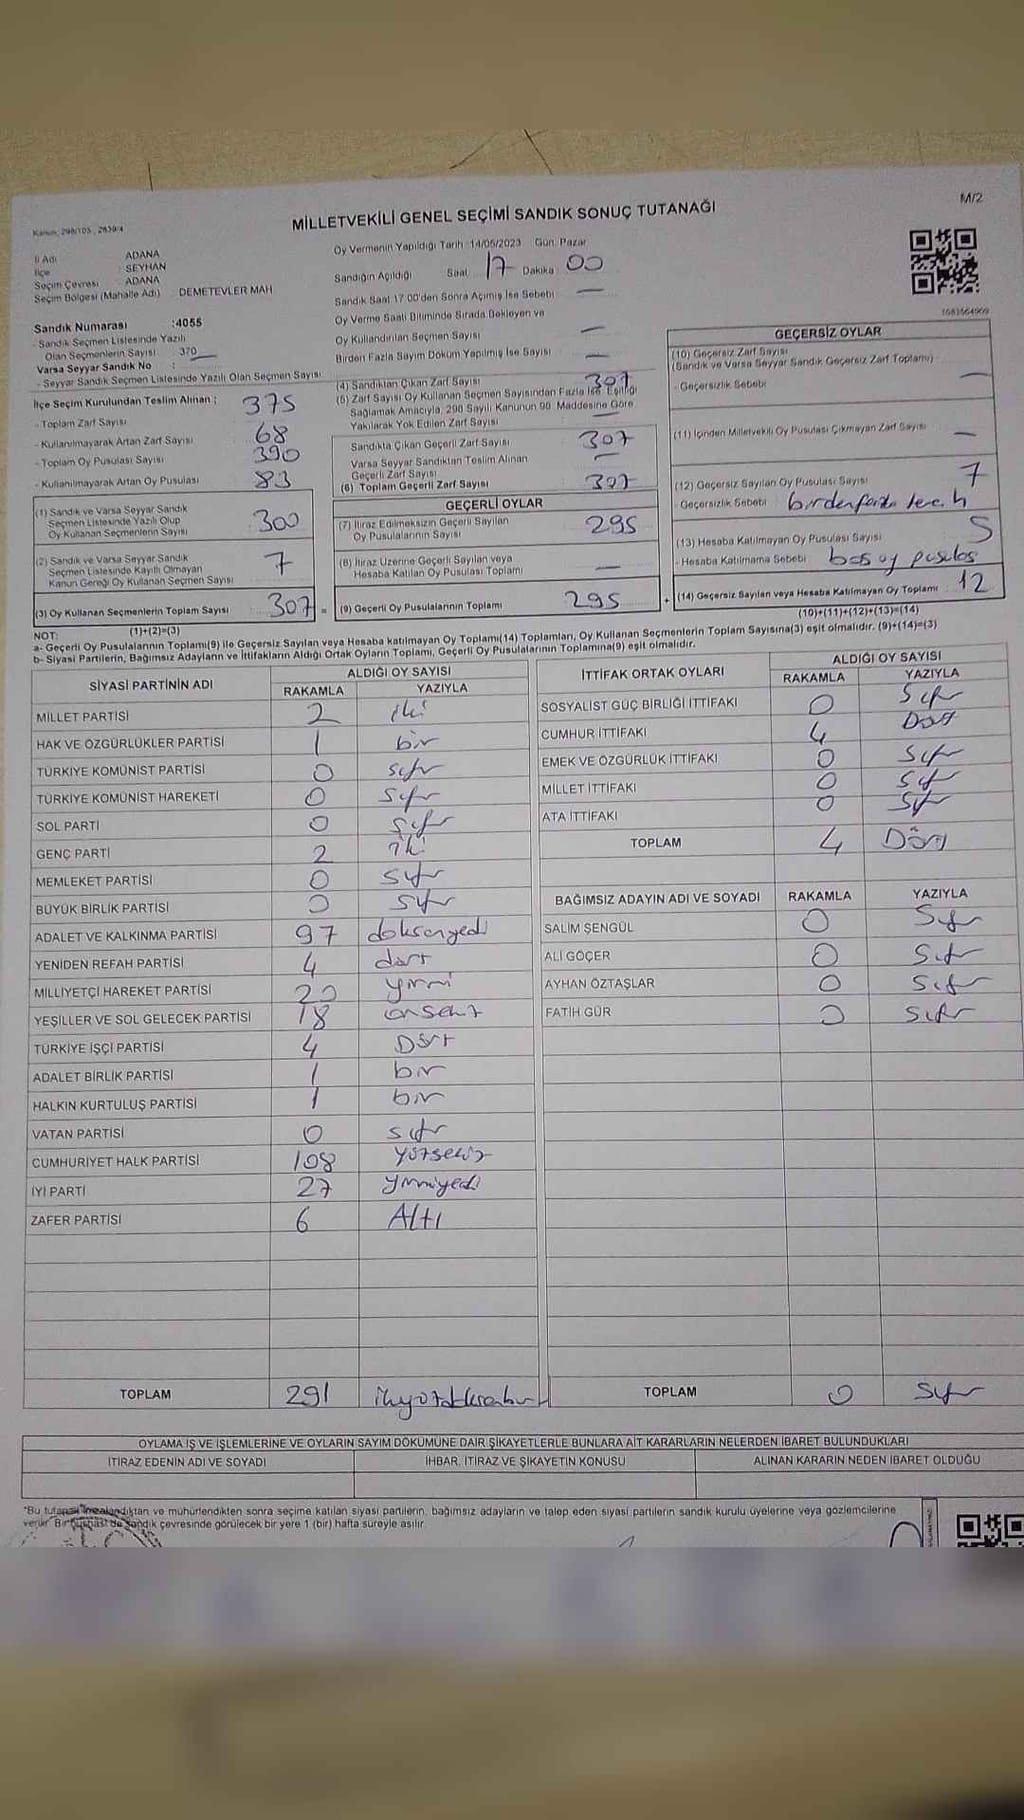 M/2
Kanun: 298/105, 2839/4
MİLLETVEKİLİ GENEL SEÇİMİ SANDIK SONUÇ TUTANAĞI
İl Adı : ADANA
İlçe : SEYHAN
Seçim Çevresi : ADANA
Seçim Bölgesi (Mahalle Adı) : DEMETEVLER MAH
Sandık Numarası :4055
- Sandık Seçmen Listesinde Yazılı
Olan Seçmenlerin Sayısı : 370
Varsa Seyyar Sandık No :
- Seyyar Sandık Seçmen Listesinde Yazılı Olan Seçmen Sayısı:
Oy Vermenin Yapıldığı Tarih :14/05/2023 Gün: Pazar
Sandığın Açıldığı Saat 17 Dakika 00
Sandık Saat 17:00'den Sonra Açımış İse Sebebi —
Oy Verme Saati Bitiminde Sırada Bekleyen ve
Oy Kullandırılan Seçmen Sayısı —
Birden Fazla Sayım Döküm Yapılmış İse Sayısı —
İlçe Seçim Kurulundan Teslim Alınan ;
- Toplam Zarf Sayısı 375
- Kullanılmayarak Artan Zarf Sayısı 68
- Toplam Oy Pusulası Sayısı 390
- Kullanılmayarak Artan Oy Pusulası 83
(1) Sandık ve Varsa Seyyar Sandık
Seçmen Listesinde Yazılı Olup
Oy Kullanan Seçmenlerin Sayısı 300
(2) Sandık ve Varsa Seyyar Sandık
Seçmen Listesinde Kayıtlı Olmayan
Kanun Gereği Oy Kullanan Seçmen Sayısı 7
(3) Oy Kullanan Seçmenlerin Toplam Sayısı 307 =
(1)+(2)=(3)
(4) Sandıktan Çıkan Zarf Sayısı 307
(5) Zarf Sayısı Oy Kullanan Seçmen Sayısından Fazla İse, Eşitliği
Sağlamak Amacıyla, 298 Sayılı Kanunun 98. Maddesine Göre
Yakılarak Yok Edilen Zarf Sayısı
Sandıkta Çıkan Geçerli Zarf Sayısı 307
Varsa Seyyar Sandıktan Teslim Alınan
Geçerli Zarf Sayısı —
(6) Toplam Geçerli Zarf Sayısı 307
GEÇERLİ OYLAR
(7) İtiraz Edilmeksizin Geçerli Sayılan
Oy Pusulalarının Sayısı 295
(8) İtiraz Üzerine Geçerli Sayılan veya
Hesaba Katılan Oy Pusulası Toplamı —
(9) Geçerli Oy Pusulalarının Toplamı 295 +
1083564909
GEÇERSİZ OYLAR
(10) Geçersiz Zarf Sayısı
(Sandık ve Varsa Seyyar Sandık Geçersiz Zarf Toplamı) —
- Geçersizlik Sebebi
(11) İçinden Milletvekili Oy Pusulası Çıkmayan Zarf Sayısı —
(12) Geçersiz Sayılan Oy Pusulası Sayısı 7
- Geçersizlik Sebebi
(13) Hesaba Katılmayan Oy Pusulası Sayısı 5
- Hesaba Katılmama Sebebi boş oy pusulası
(14) Geçersiz Sayılan veya Hesaba Katılmayan Oy Toplamı 12
(10)+(11)+(12)+(13)=(14)
NOT:
a- Geçerli Oy Pusulalarının Toplamı(9) ile Geçersiz Sayılan veya Hesaba katılmayan Oy Toplamı(14) Toplamları, Oy Kullanan Seçmenlerin Toplam Sayısına(3) eşit olmalıdır. (9)+(14)=(3)
b- Siyasi Partilerin, Bağımsız Adayların ve İttifakların Aldığı Ortak Oyların Toplamı, Geçerli Oy Pusulalarının Toplamına(9) eşit olmalıdır.
SİYASİ PARTİNİN ADI ALDIĞI OY SAYISI
RAKAMLA YAZIYLA
MİLLET PARTİSİ 2 iki
HAK VE ÖZGÜRLÜKLER PARTİSİ 1 bir
TÜRKİYE KOMÜNİST PARTİSİ 0 sıfır
TÜRKİYE KOMÜNİST HAREKETİ 0 sıfır
SOL PARTİ 0 sıfır
GENÇ PARTİ 2 iki
MEMLEKET PARTİSİ 0 sıfır
BÜYÜK BİRLİK PARTİSİ 0 sıfır
ADALET VE KALKINMA PARTİSİ 97 doksanyedi
YENİDEN REFAH PARTİSİ 4 dört
MİLLİYETÇİ HAREKET PARTİSİ 20 yirmi
YEŞİLLER VE SOL GELECEK PARTİSİ 18 onsekiz
TÜRKİYE İŞÇİ PARTİSİ 4 Dört
ADALET BİRLİK PARTİSİ 1 bir
HALKIN KURTULUŞ PARTİSİ 1 bir
VATAN PARTİSİ 0 sıfır
CUMHURİYET HALK PARTİSİ 108 yüzsekiz
İYİ PARTİ 27 yirmiyedi
ZAFER PARTİSİ 6 Altı
TOPLAM 291 ikiyüzdoksanbir
İTTİFAK ORTAK OYLARI ALDIĞI OY SAYISI
RAKAMLA YAZIYLA
SOSYALİST GÜÇ BİRLİĞİ İTTİFAKI 0 Sıfır
CUMHUR İTTİFAKI 4 Dört
EMEK VE ÖZGÜRLÜK İTTİFAKI 0 Sıfır
MİLLET İTTİFAKI 0 Sıfır
ATA İTTİFAKI 0 Sıfır
TOPLAM 4 Dört
BAĞIMSIZ ADAYIN ADI VE SOYADI RAKAMLA YAZIYLA
SALİM ŞENGÜL 0 Sıfır
ALİ GÖÇER 0 Sıfır
AYHAN ÖZTAŞLAR 0 Sıfır
FATİH GÜR 0 Sıfır
TOPLAM 0 Sıfır
OYLAMA İŞ VE İŞLEMLERİNE VE OYLARIN SAYIM DÖKÜMÜNE DAİR ŞİKAYETLERLE BUNLARA AİT KARARLARIN NELERDEN İBARET BULUNDUKLARI
İTİRAZ EDENİN ADI VE SOYADI İHBAR, İTİRAZ VE ŞİKAYETİN KONUSU ALINAN KARARIN NEDEN İBARET OLDUĞU
*Bu tutanak imzalandıktan ve mühürlendikten sonra seçime katılan siyasi partilerin, bağımsız adayların ve talep eden siyasi partilerin sandık kurulu üyelerine veya gözlemcilerine
verilir. Bir nüshası da sandık çevresinde görülecek bir yere 1 (bir) hafta süreyle asılır.